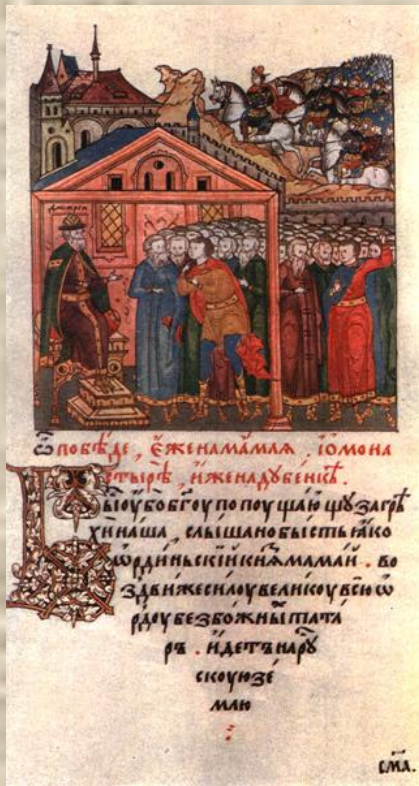 дмитрїи
Ѿ побѣде, є́же на мамаꙗ, ӥ о мона
стырѣ, и́же на дубенкѣ.
Быоу́бо бг҃оу попоущаю́щу за грѣ
хѝ наша, слышано бысть ꙗ́ко
ѡ҆рди́ньскїи кнѧз҃ь мамаи. во
здви́же силоу великоу всю̀ ѡ
рдоу безбожны́ татa
ръ. и҆детъ на рꙋ
скоую зе
млю
смл҃а.